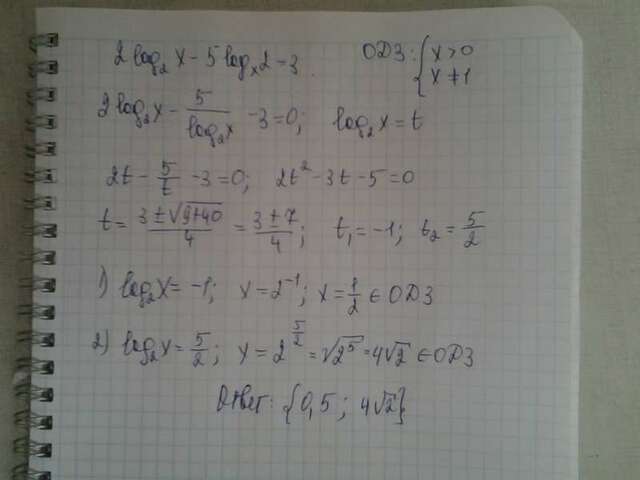 2log₂x - 5logₓ2 - 3. ОДЗ: { x>0
x≠1
2log₂x - 5/log₂x - 3=0; log₂x = t
2t - 5/t - 3=0; 2t² - 3t - 5=0
t = (3±√(9+40))/4 = (3±7)/4; t₁ = -1; t₂ = 5/2
1) log₂x = -1; x = 2⁻¹; x = 1/2 ∈ ОДЗ
2) log₂x = 5/2; x = 2^(5/2) = √(2⁵) = 4√2 ∈ ОДЗ
Ответ: {0,5; 4√2}